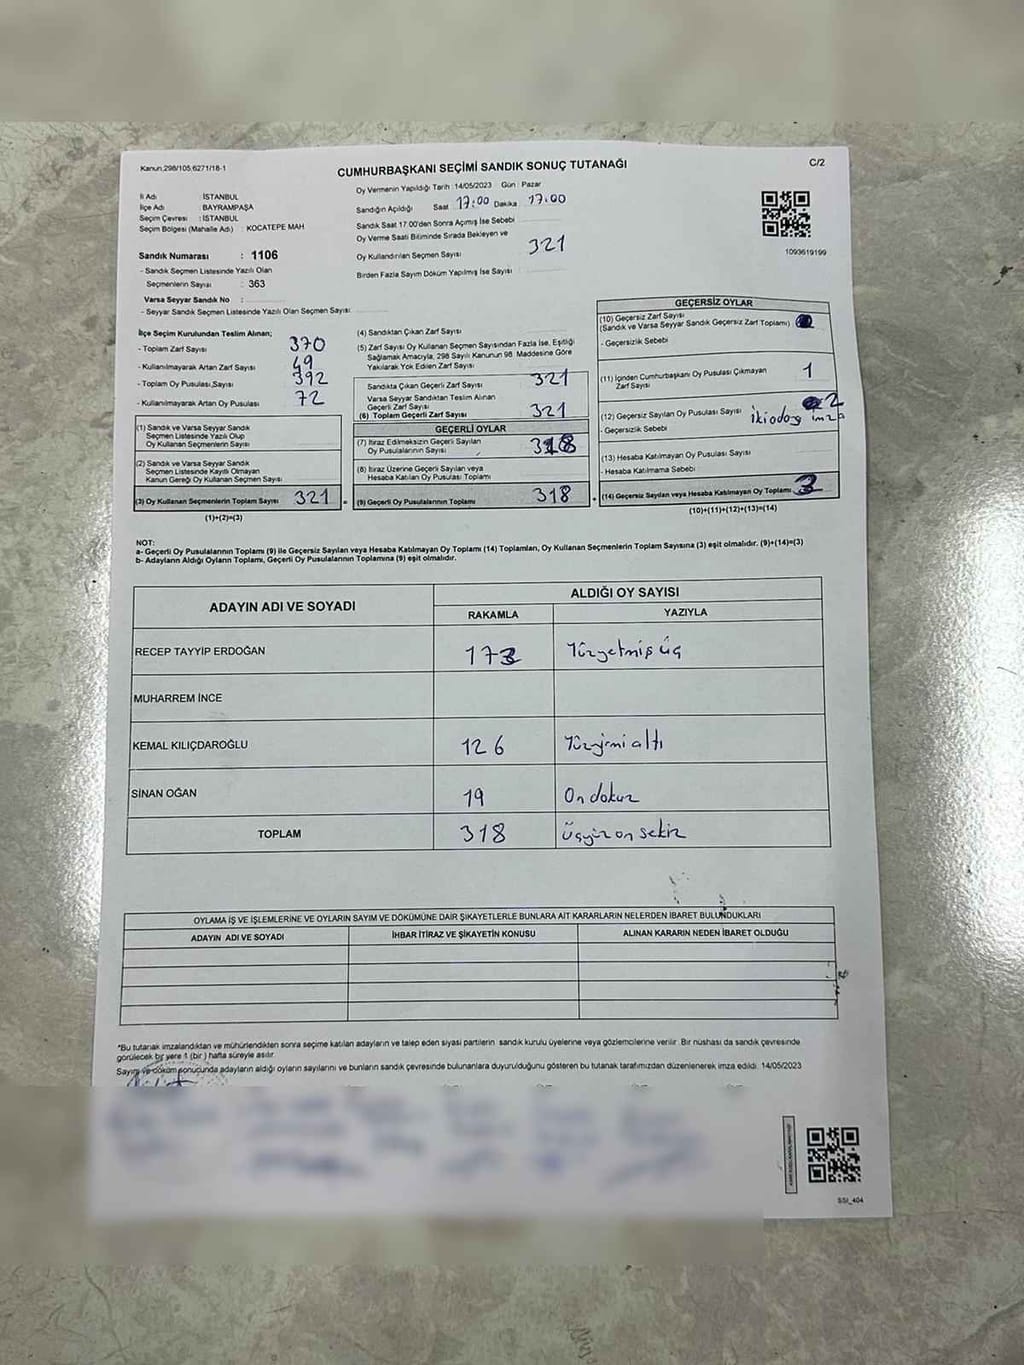 Kanun;298/105;6271/18-1
CUMHURBAŞKANI SEÇİMİ SANDIK SONUÇ TUTANAĞI
C/2
İl Adı : İSTANBUL
İlçe Adı : BAYRAMPAŞA
Seçim Çevresi : İSTANBUL
Seçim Bölgesi (Mahalle Adı) : KOCATEPE MAH
Sandık Numarası : 1106
- Sandık Seçmen Listesinde Yazılı Olan
Seçmenlerin Sayısı : 363
Varsa Seyyar Sandık No :
- Seyyar Sandık Seçmen Listesinde Yazılı Olan Seçmen Sayısı:
Oy Vermenin Yapıldığı Tarih : 14/05/2023 Gün : Pazar
Sandığın Açıldığı Saat 17:00 Dakika 17:00
Sandık Saat 17.00'den Sonra Açımış İse Sebebi
Oy Verme Saati Bitiminde Sırada Bekleyen ve
Oy Kullandırılan Seçmen Sayısı 321
Birden Fazla Sayım Döküm Yapılmış İse Sayısı
1093619199
İlçe Seçim Kurulundan Teslim Alınan;
- Toplam Zarf Sayısı 370
- Kullanılmayarak Artan Zarf Sayısı 49
- Toplam Oy Pusulası Sayısı 392
- Kullanılmayarak Artan Oy Pusulası 72
(1) Sandık ve Varsa Seyyar Sandık
Seçmen Listesinde Yazılı Olup
Oy Kullanan Seçmenlerin Sayısı
(2) Sandık ve Varsa Seyyar Sandık
Seçmen Listesinde Kayıtlı Olmayan
Kanun Gereği Oy Kullanan Seçmen Sayısı
(3) Oy Kullanan Seçmenlerin Toplam Sayısı 321
(1)+(2)=(3)
(4) Sandıktan Çıkan Zarf Sayısı
(5) Zarf Sayısı Oy Kullanan Seçmen Sayısından Fazla İse, Eşitliği
Sağlamak Amacıyla, 298 Sayılı Kanunun 98. Maddesine Göre
Yakılarak Yok Edilen Zarf Sayısı
Sandıkta Çıkan Geçerli Zarf Sayısı 321
Varsa Seyyar Sandıktan Teslim Alınan
Geçerli Zarf Sayısı
(6) Toplam Geçerli Zarf Sayısı 321
GEÇERLİ OYLAR
(7) İtiraz Edilmeksizin Geçerli Sayılan
Oy Pusulası Sayısı 318
(8) İtiraz Üzerine Geçerli Sayılan veya
Hesaba Katılan Oy Pusulası Toplamı
(9) Geçerli Oy Pusulalarının Toplamı 318
GEÇERSİZ OYLAR
(10) Geçersiz Zarf Sayısı
(Sandık ve Varsa Seyyar Sandık Geçersiz Zarf Toplamı)
- Geçersizlik Sebebi
(11) İçinden Cumhurbaşkanı Oy Pusulası Çıkmayan
Zarf Sayısı 1
(12) Geçersiz Sayılan Oy Pusulası Sayısı 2
- Geçersizlik Sebebi
(13) Hesaba Katılmayan Oy Pusulası Sayısı
- Hesaba Katılmama Sebebi
(14) Geçersiz Sayılan veya Hesaba Katılmayan Oy Toplamı 3
(10)+(11)+(12)+(13)=(14)
NOT:
a- Geçerli Oy Pusulalarının Toplamı (9) ile Geçersiz Sayılan veya Hesaba Katılmayan Oy Toplamı (14) Toplamları, Oy Kullanan Seçmenlerin Toplam Sayısına (3) eşit olmalıdır. (9)+(14)=(3)
b- Adayların Aldığı Oyların Toplamı, Geçerli Oy Pusulalarının Toplamına (9) eşit olmalıdır.
ADAYIN ADI VE SOYADI
ALDIĞI OY SAYISI
RAKAMLA YAZIYLA
RECEP TAYYİP ERDOĞAN 173 Yüzyetmiş üç
MUHARREM İNCE
KEMAL KILIÇDAROĞLU 126 Yüzyirmi altı
SİNAN OĞAN 19 On dokuz
TOPLAM 318 Üçyüz on sekiz
OYLAMA İŞ VE İŞLEMLERİNE VE OYLARIN SAYIM VE DÖKÜMÜNE DAİR ŞİKAYETLERLE BUNLARA AİT KARARLARIN NELERDEN İBARET BULUNDUKLARI
ADAYIN ADI VE SOYADI İHBAR İTİRAZ VE ŞİKAYETİN KONUSU ALINAN KARARIN NEDEN İBARET OLDUĞU
"Bu tutanak imzalandıktan ve mühürlendikten sonra seçime katılan adayların ve talep eden siyasi partilerin sandık kurulu üyelerine veya gözlemcilerine verilir. Bir nüshası da sandık çevresinde
görülecek bir yere 1 (bir) hafta süreyle asılır.
Sayım ve döküm sonucunda adayların aldığı oyların sayılarını ve bunların sandık çevresinde bulunanlara duyurulduğunu gösteren bu tutanak tarafımızdan düzenlenerek imza edildi. 14/05/2023
SSI_404